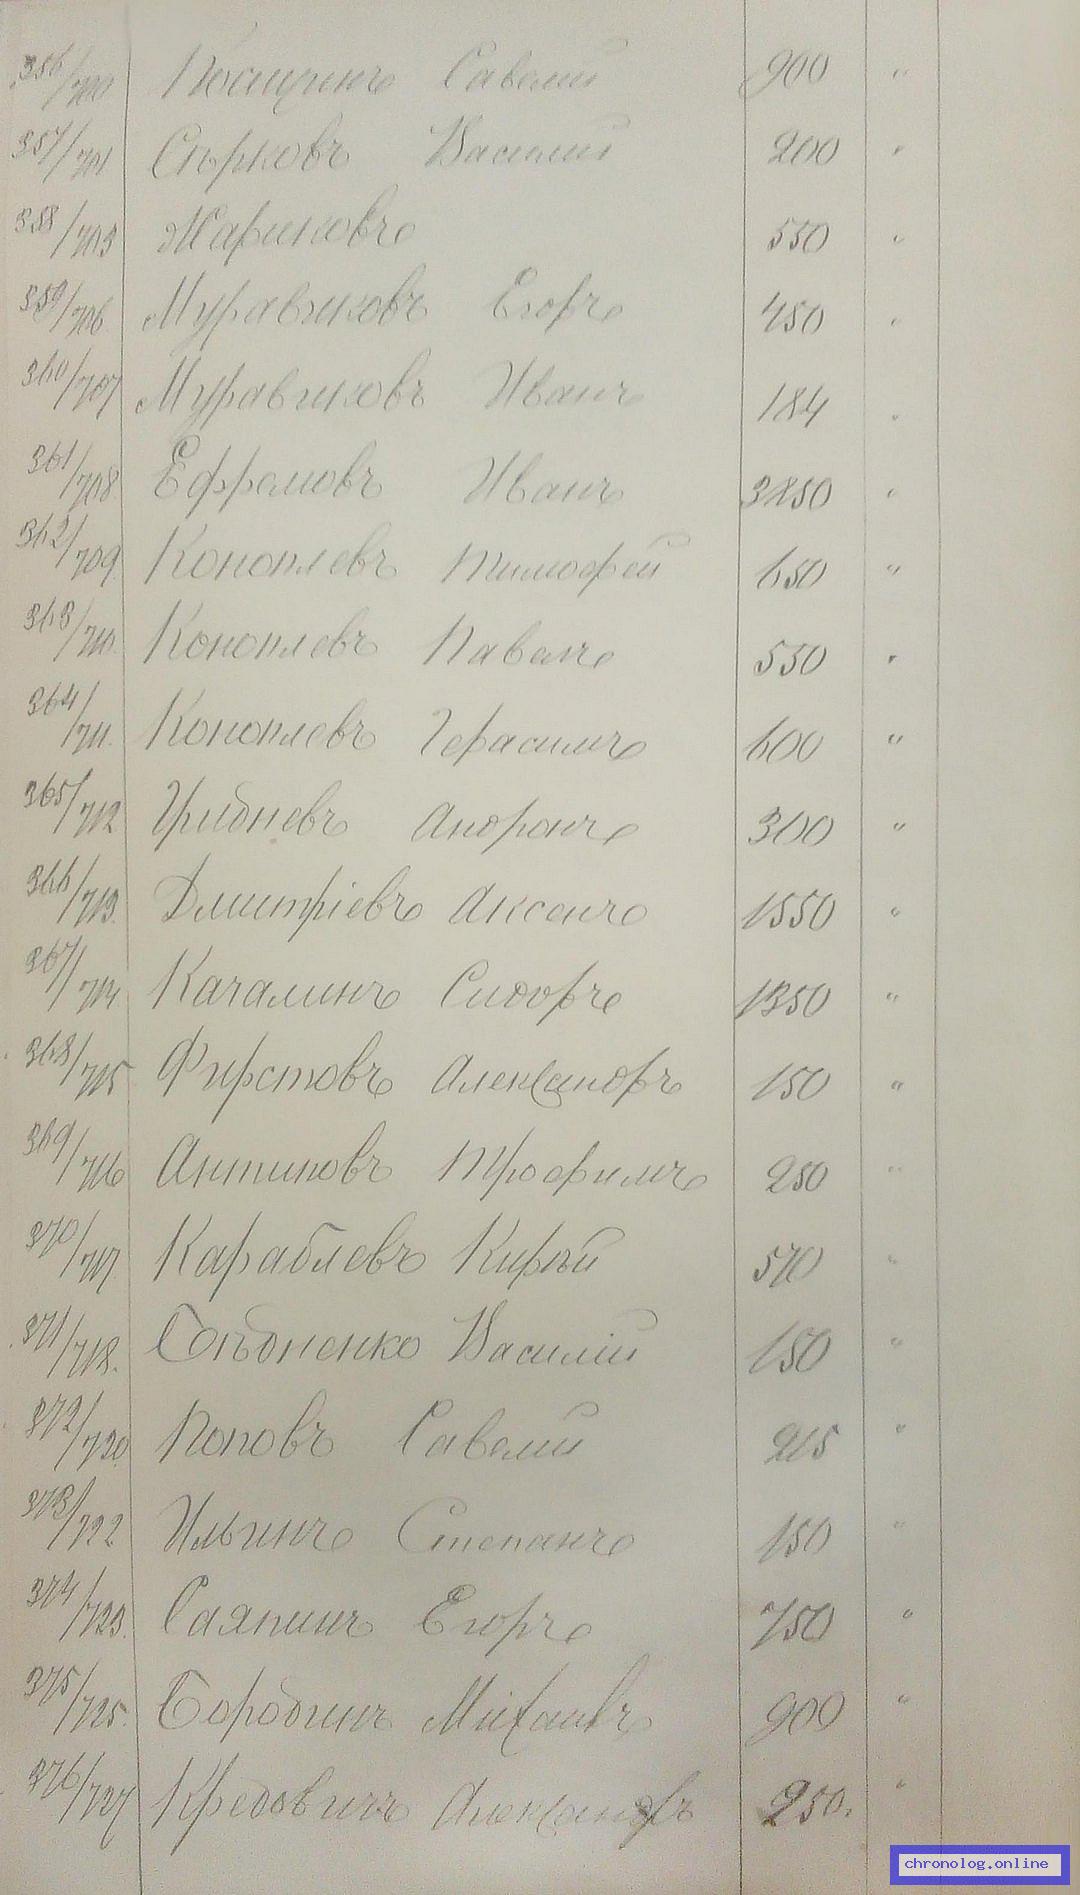 356/700 Посицинъ Савелій 900 "
357/701 Спѣрковъ Василій 200 "
358/703 Жариковъ 550 "
359/706. Муравьиковъ Егоръ 450 "
360/707 Муравьиковъ Иванъ 184 "
361/708 Ефремовъ Иванъ 3850 "
362/709. Коноплевъ Тимофей 650 "
363/710. Коноплевъ Павелъ 550 "
364/711. Коноплевъ Герасимъ 600 "
365/712 Андронъ 300 "
366/713. Дмитріевъ Аксенъ 1550 "
367/714. Качалинъ Сидоръ 1350 "
368/715 Фирстовъ Александръ 150 "
369/716 Антиповъ Трофимъ 250 "
370/717. Караблевъ Кирѣй 570 "
371/718. Василій 150 "
372/720. Поповъ Савелій 215 "
373/722 Ильинъ Степанъ 150 "
374/723. Саяпинъ Егоръ 750 "
375/725. Бородинъ Михаилъ 900 "
376/727 Кредовичъ Александръ 250. "
chronolog.online